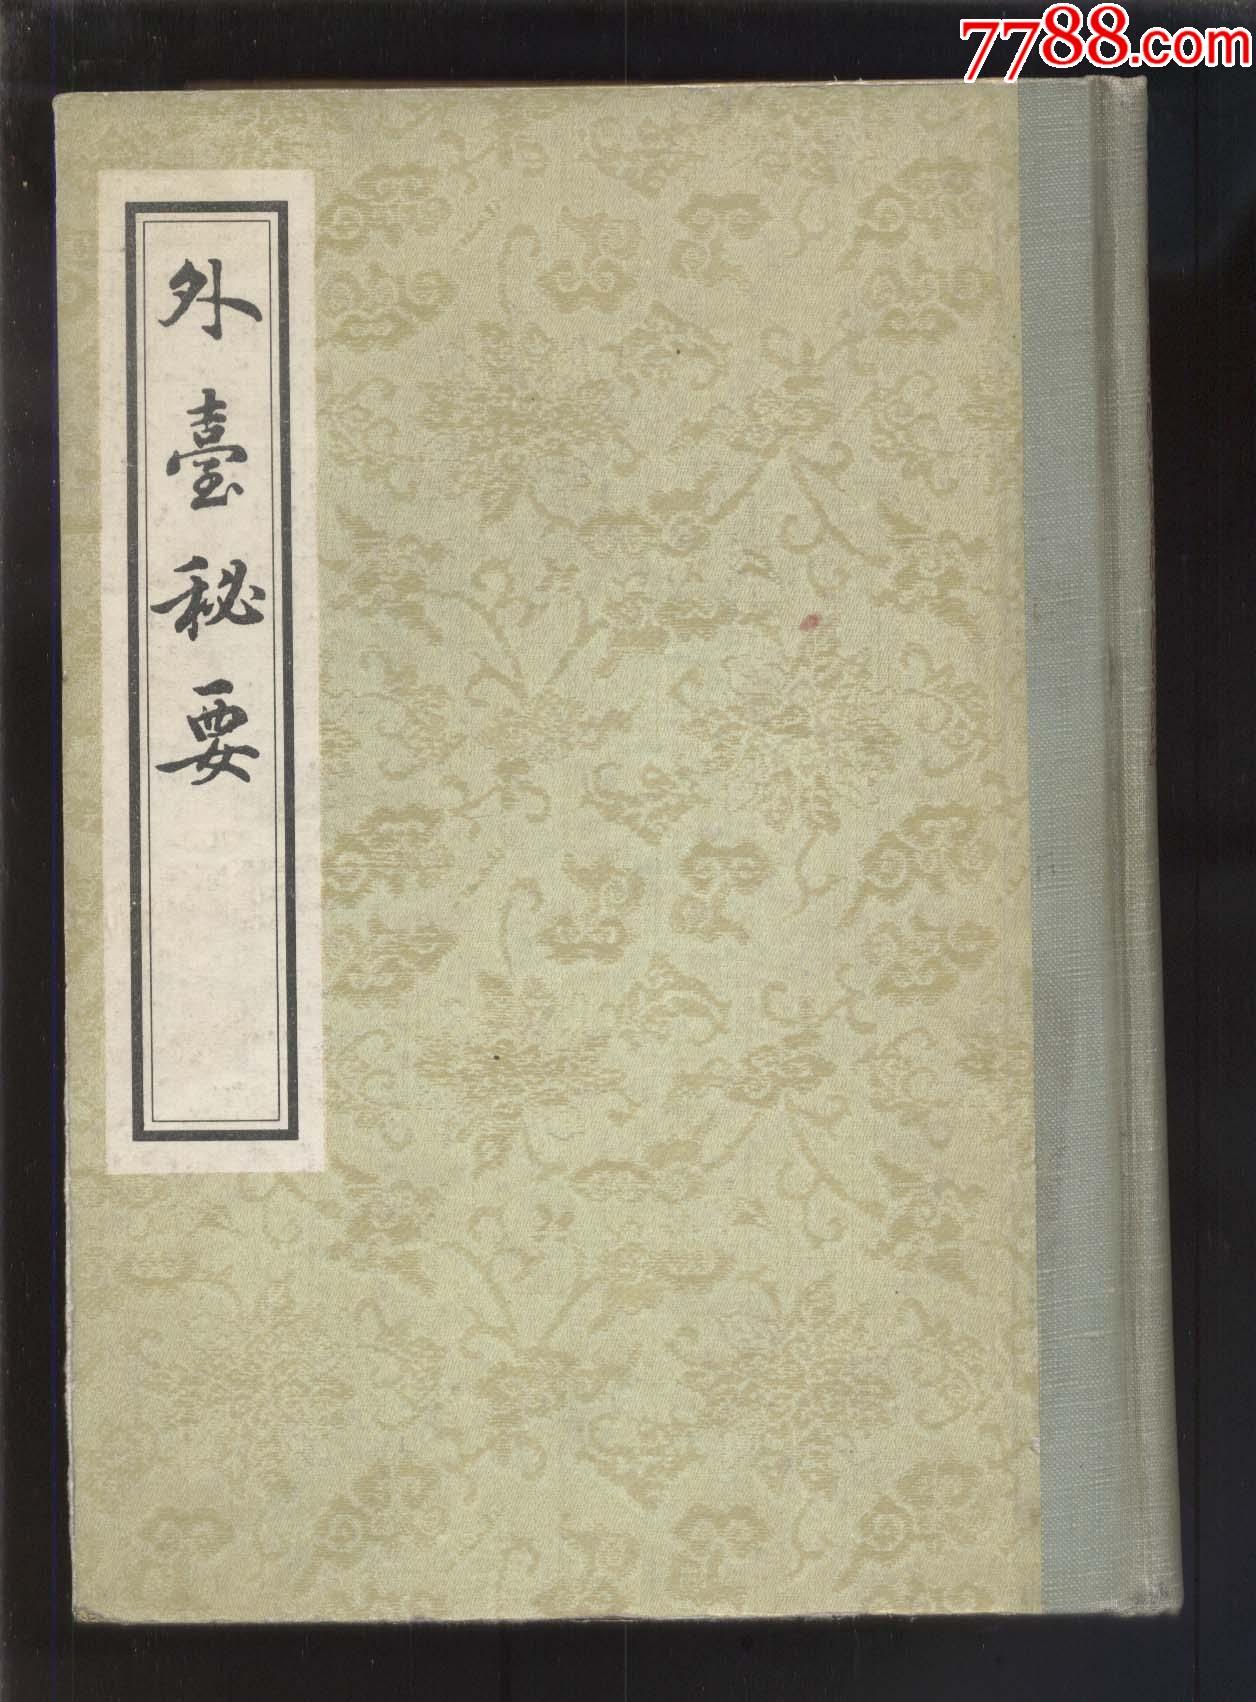 7788.com
外臺秘要